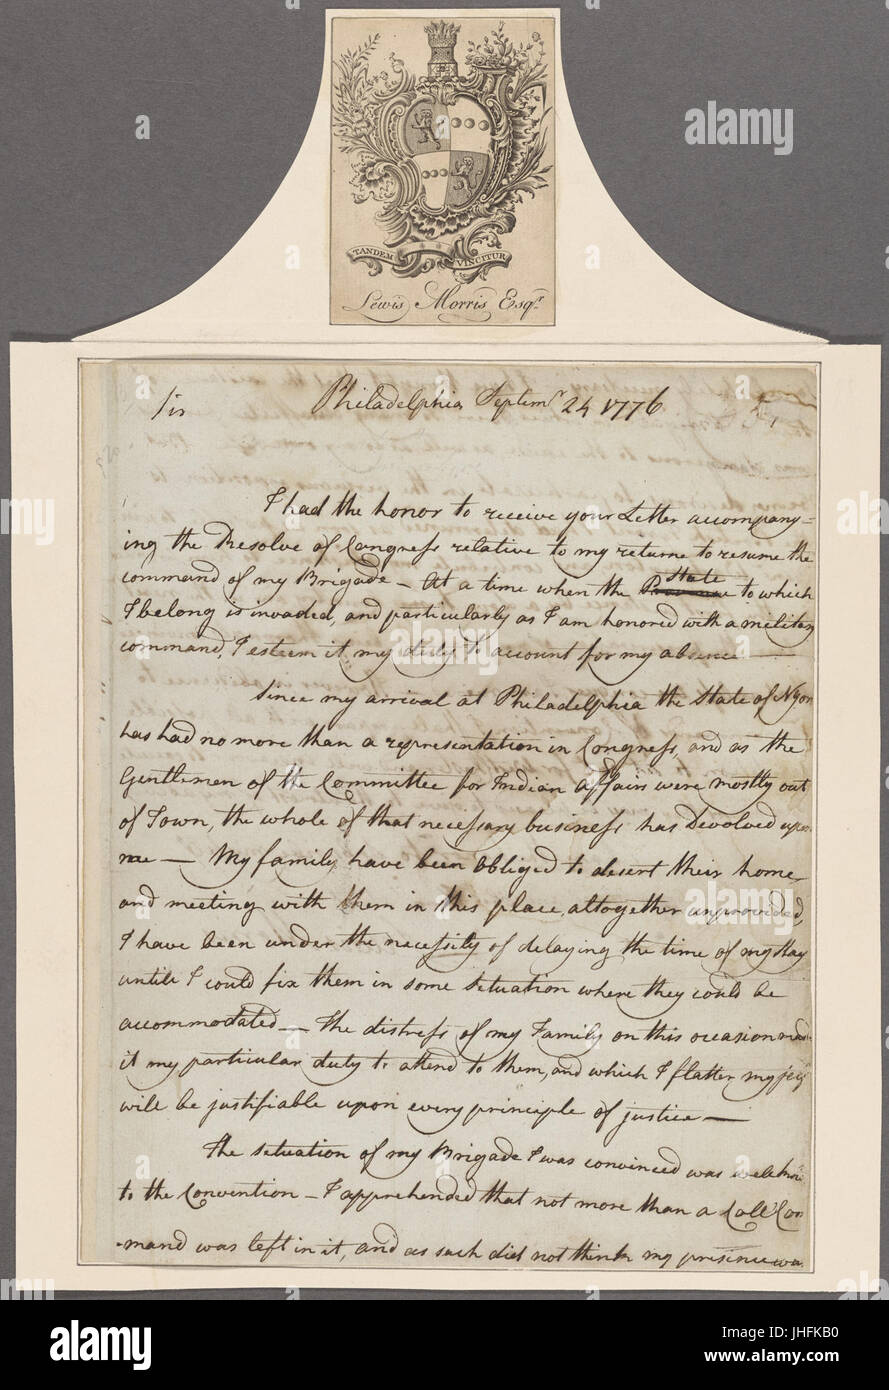 TANDEM VINCITUR
Lewis Morris Esqr.
Sir Philadelphia Septemr 24 1776
I had the honor to receive your Letter accompany=
ing the Resolve of Congress relative to my returne to resume the
command of my Brigade — At a time when the State to which
I belong is invaded, and particularly as I am honored with a military
command, I esteem it my duty to account for my absence —
Since my arrival at Philadelphia the State of NYor
has had no more than a representation in Congress, and as the
Gentlemen of the Committee for Indian Affairs were mostly out
of Town, the whole of that necessary business has Devolved upon
me — My family have been obliged to desert their home
and meeting with them in this place altogether unprovided,
I have been under the necessity of delaying the time of my stay
untill I could fix them in some situation where they could be
accommodated — The distress of my Family on this occasion made
it my particular duty to attend to them, and which I flatter my
will be justifiable upon every principle of justice —
The situation of my Brigade I was convinced was
to the Convention — I apprehended that not more than a Coll Com
-mand was left in it, and as such did not think my presence wa
alamy
alamy stock photo
JHFKB0
www.alamy.com